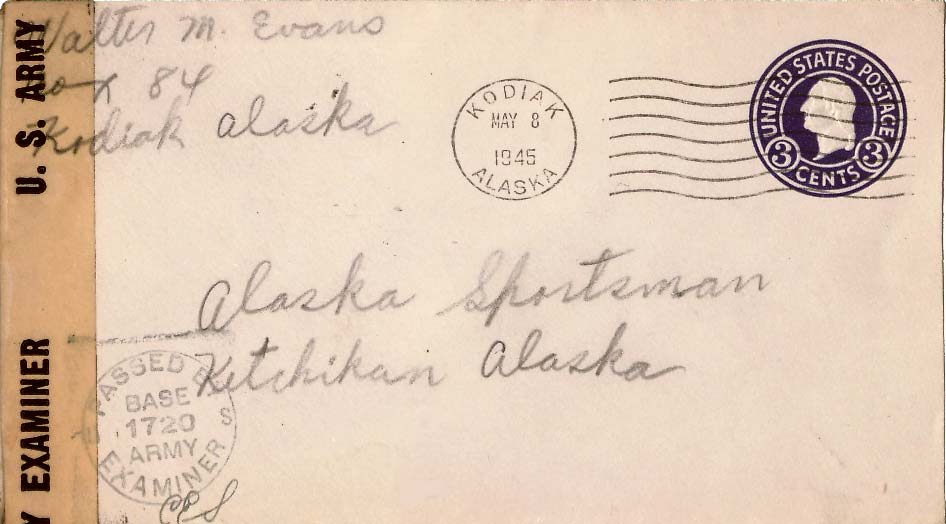 Walter M. Evans
Box 84
Kodiak Alaska
KODIAK
MAY 8
1945
ALASKA
UNITED STATES POSTAGE
3 CENTS 3
Alaska Sportsman
Ketchikan Alaska
U. S. ARMY
Y EXAMINER
PASSED
BASE
1720
ARMY
EXAMINER
U S